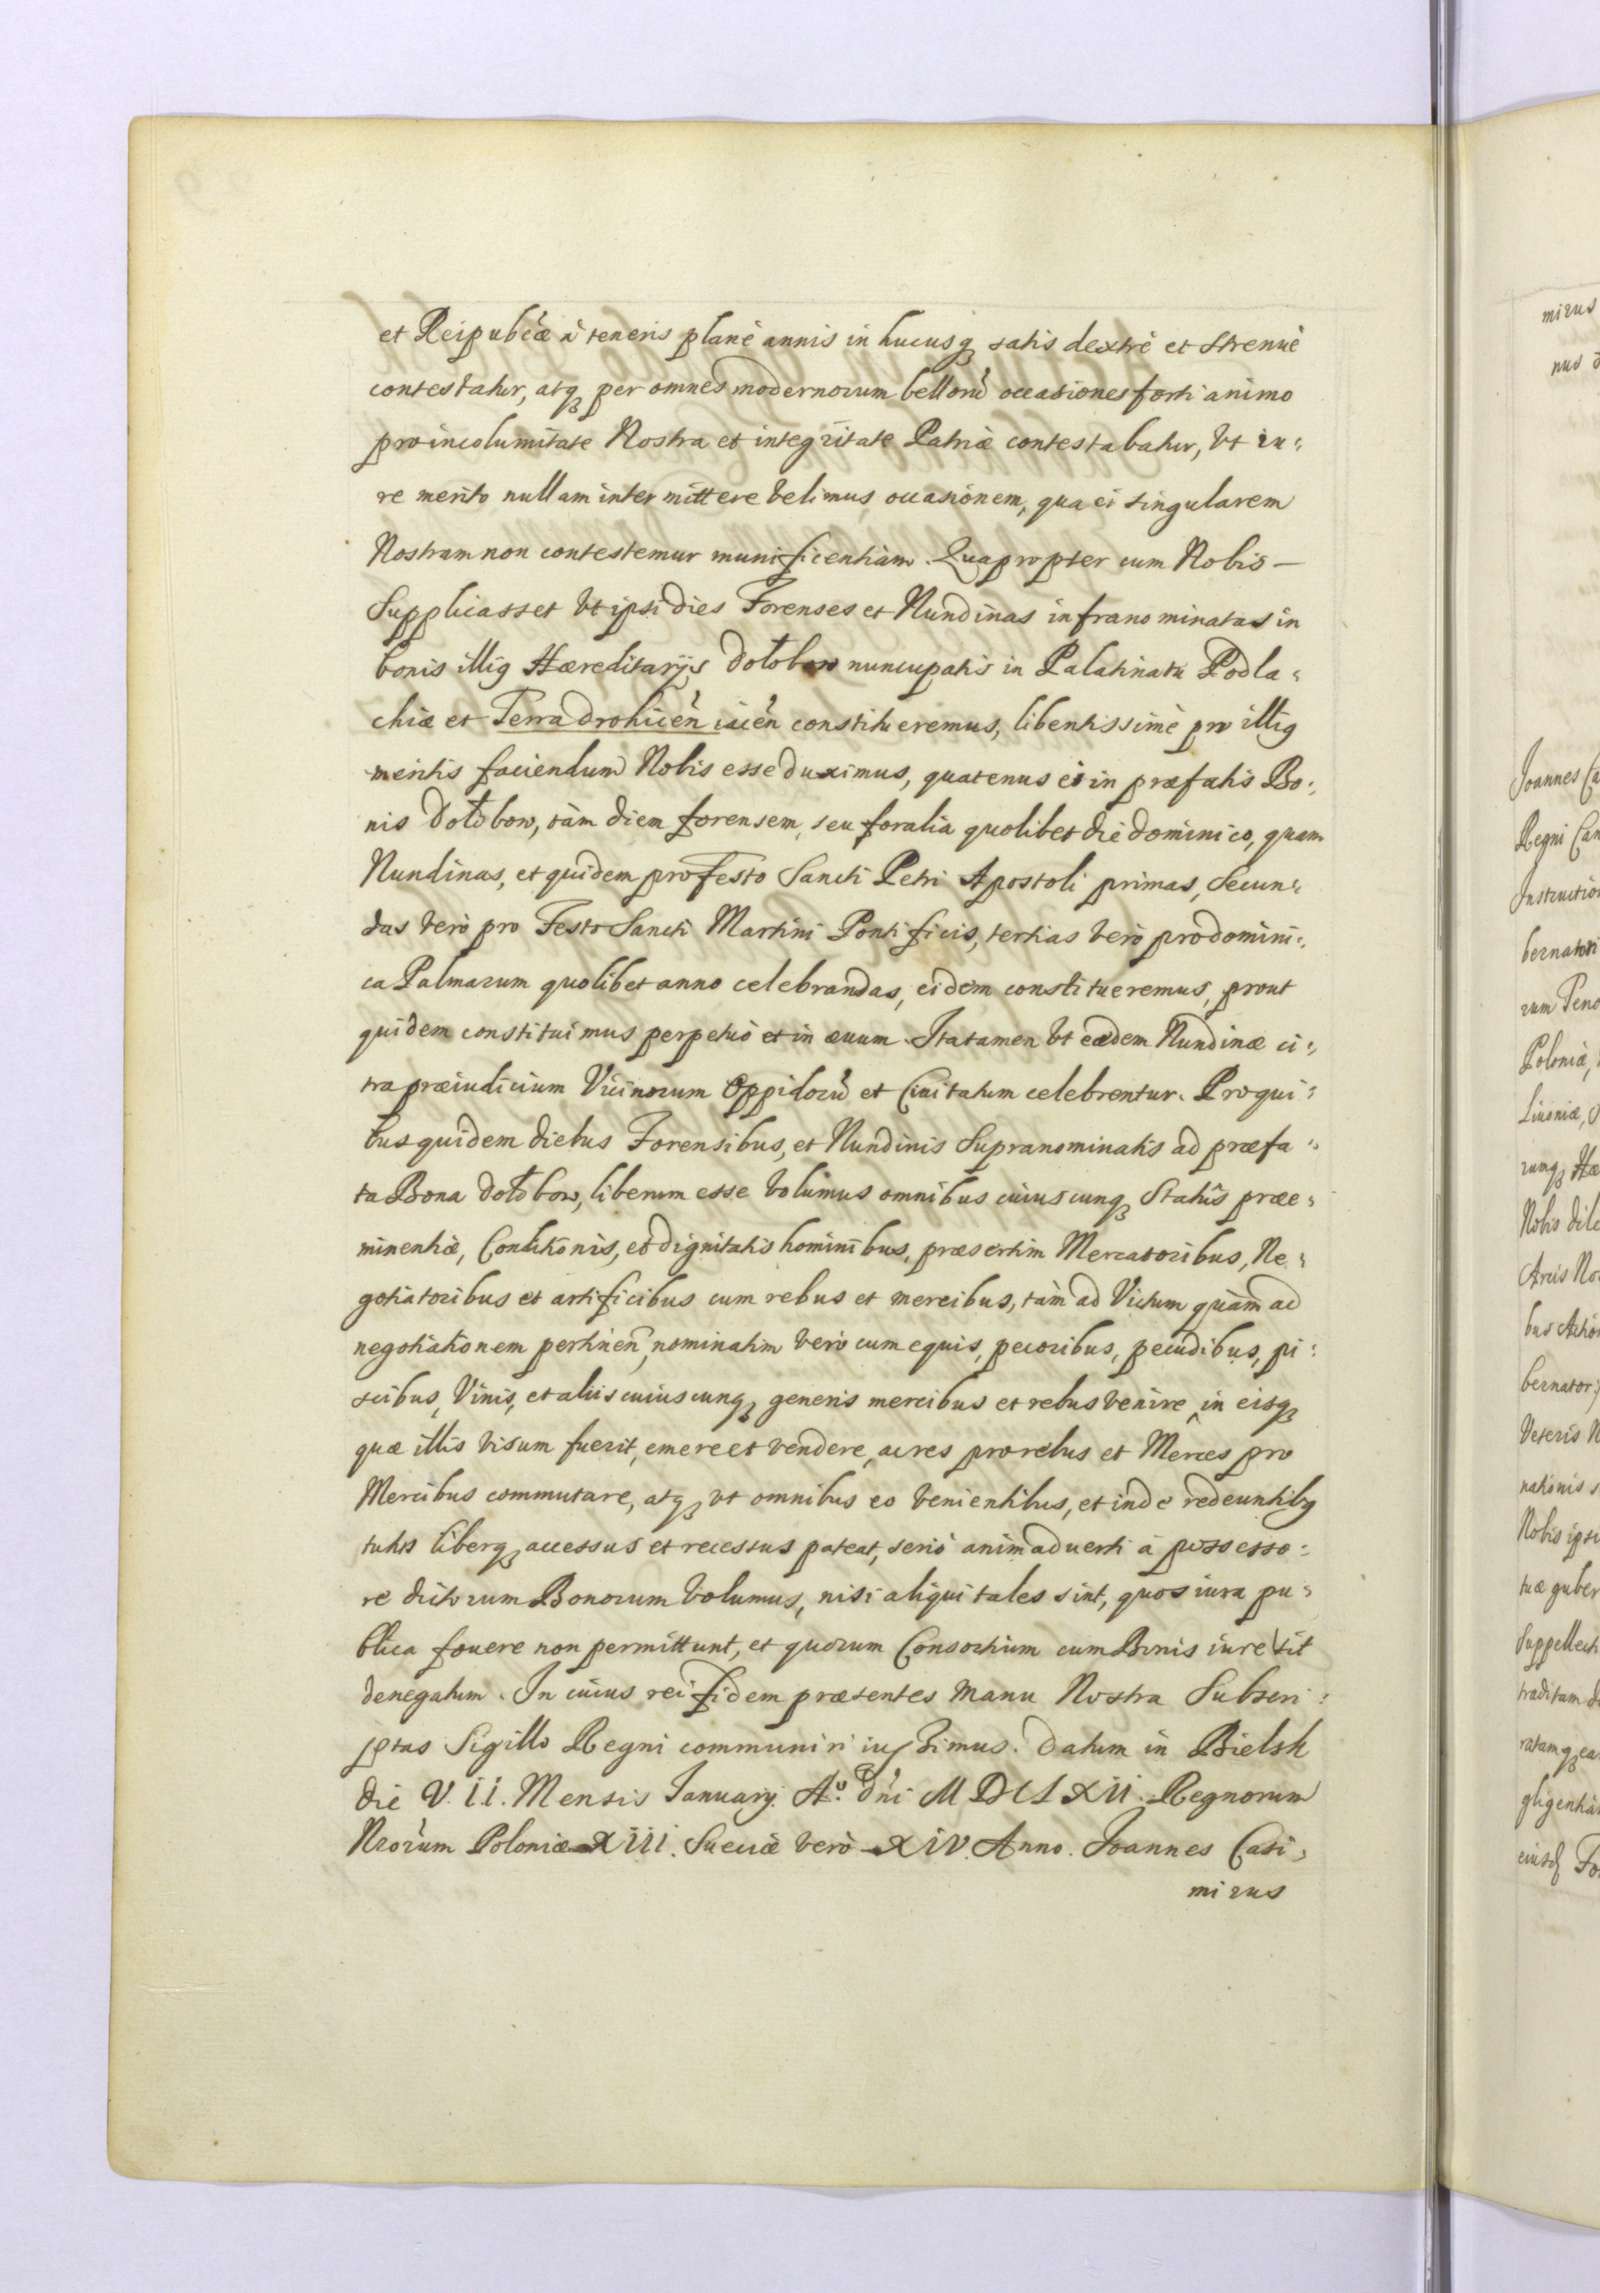 et Reipubcæ à teneris planè annis in hucusq satis dextrè et strenuè
contestatur, atq per omnes modernorum bellorũ occasiones forti animo
pro incolumitate Nostra et integritate Patriæ contestabatur, Vt iu:
re merito nullam intermittere Velimus occasionem, qua ei singularem
Nostram non contestemur munificentiam. Quapropter cum Nobis —
Supplicasset Vt ipsi dies Forenses et Nundinas infranominatas in
bonis illiq Hæreditarijs Dołobow nuncupatis in Palatinatu Podla:
chiæ et Terra Drohicen iacen constitueremus, libentissimè pro illiq
meritis faciendum Nobis esse duximus, quatenus ei in præfatis Bo:
nis Dołobow, tàm diem forensem, seu foralia quolibet die Dominico, quam
Nundinas, et quidem pro Festo Sancti Petri Apostoli primas, Secun:
das Verò pro Festo Sancti Martini Pontificis, tertias Verò pro Domini:
ca Palmarum quolibet anno celebrandas, eidem constitueremus, prout
quidem constituimus perpetuò et in æuum. Ita tamen Vt eædem Nundinæ ci:
tra præiudicium Vicinorum Oppidorũ et Ciuitatum celebrentur. Pro qui:
bus quidem diebus Forensibus, et Nundinis Supranominatis ad præfa:
ta Bona Dołobow, liberum esse Volumus omnibus cuiuscunq Statûs præe:
minentiæ, Conditionis, et dignitatis hominibus, præsertim Mercatoribus, Ne:
gotiatoribus et artificibus cum rebus et mercibus, tàm ad Victum quàm ad
negotiationem pertinen, nominatim Verò cum equis, pecoribus, pecudibus, pi:
scibus, Vinis, et aliis cuiuscunq generis mercibus et rebus Venire, in eisq
quæ illis Visum fuerit, emere et vendere, ac res pro rebus et Merces pro
Mercibus commutare, atq vt omnibus eo Venientibus, et inde redeuntibq
tutus liberq accessus et recessus pateat, seriò animaduerti à possesso:
re dictorum Bonorum Volumus, nisi aliqui tales sint, quos iura pu:
blica fouere non permittunt, et quorum Consortium cum Bonis iure sit
denegatum. In cuius rei fidem præsentes Manu Nostra Subscri:
ptas Sigillo Regni communiri iussimus. Datum in Bielsk
die V.II. Mensis January. Aº. Dni MDCLXII. Regnorum
Nrorum Poloniæ XIII. Sueciæ Verò XIV. Anno. Joannes Casi:
mirus
mirus
nus
Joannes Ca
Regni Can
Instruction
bernatori
rum Peno
Poloniæ,
Liuoniæ, S
rumq Hæ
Nobis dile
Arcis No
bus Action
bernator
Veteris N
nationis s
Nobis ipsi
tuæ guber
Suppellecti
traditam d
ratamq ea
gligentia
eiusd Fo